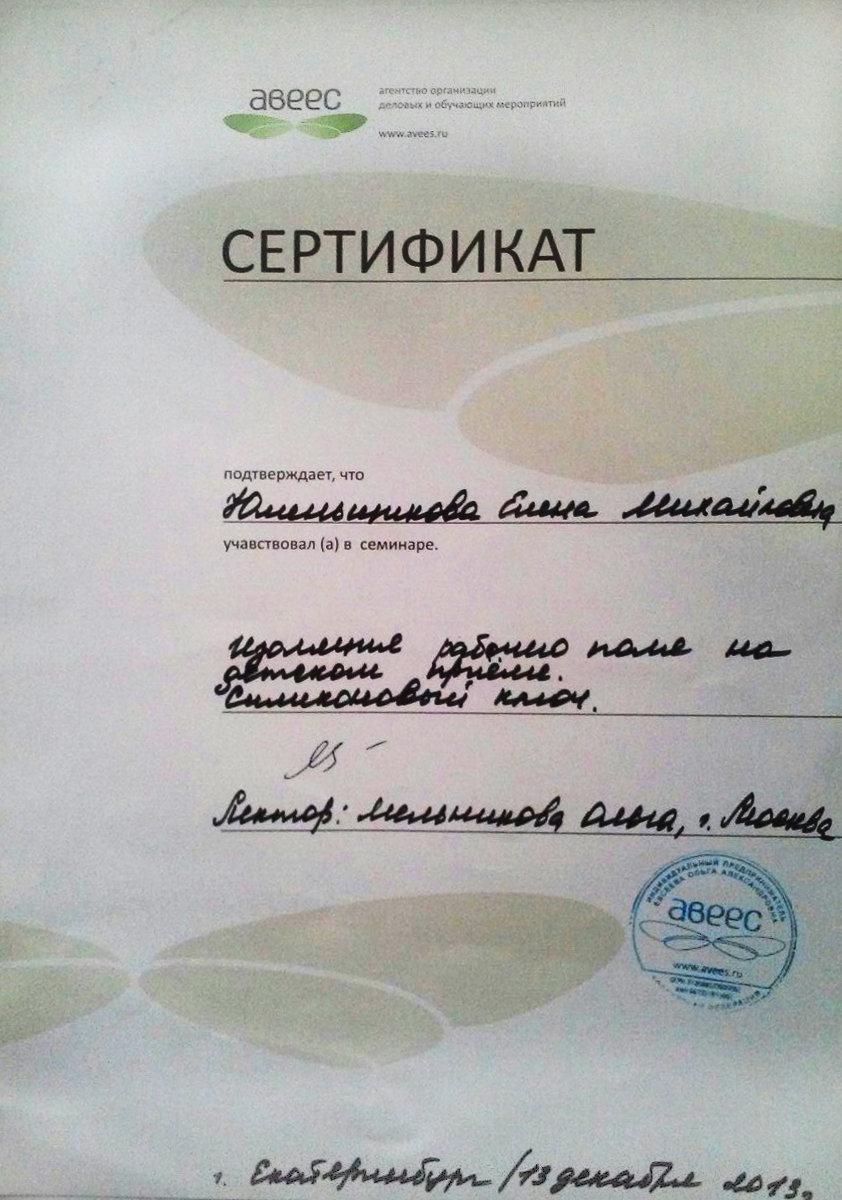 авеес
агентство организации
деловых и обучающих мероприятий
www.avees.ru
СЕРТИФИКАТ
подтверждает, что
Юменьшикова Елена Михайловна
учавствовал (а) в семинаре.
Изоляция рабочего поля на
детском приёме.
Силиконовый ключ.
Лектор: Мельникова Ольга, г. Москва
ИНДИВИДУАЛЬНЫЙ ПРЕДПРИНИМАТЕЛЬ
ЕВСЕЕВА ОЛЬГА АЛЕКСАНДРОВНА
авеес
www.avees.ru
г. Екатеринбург /13 декабря 2013г.